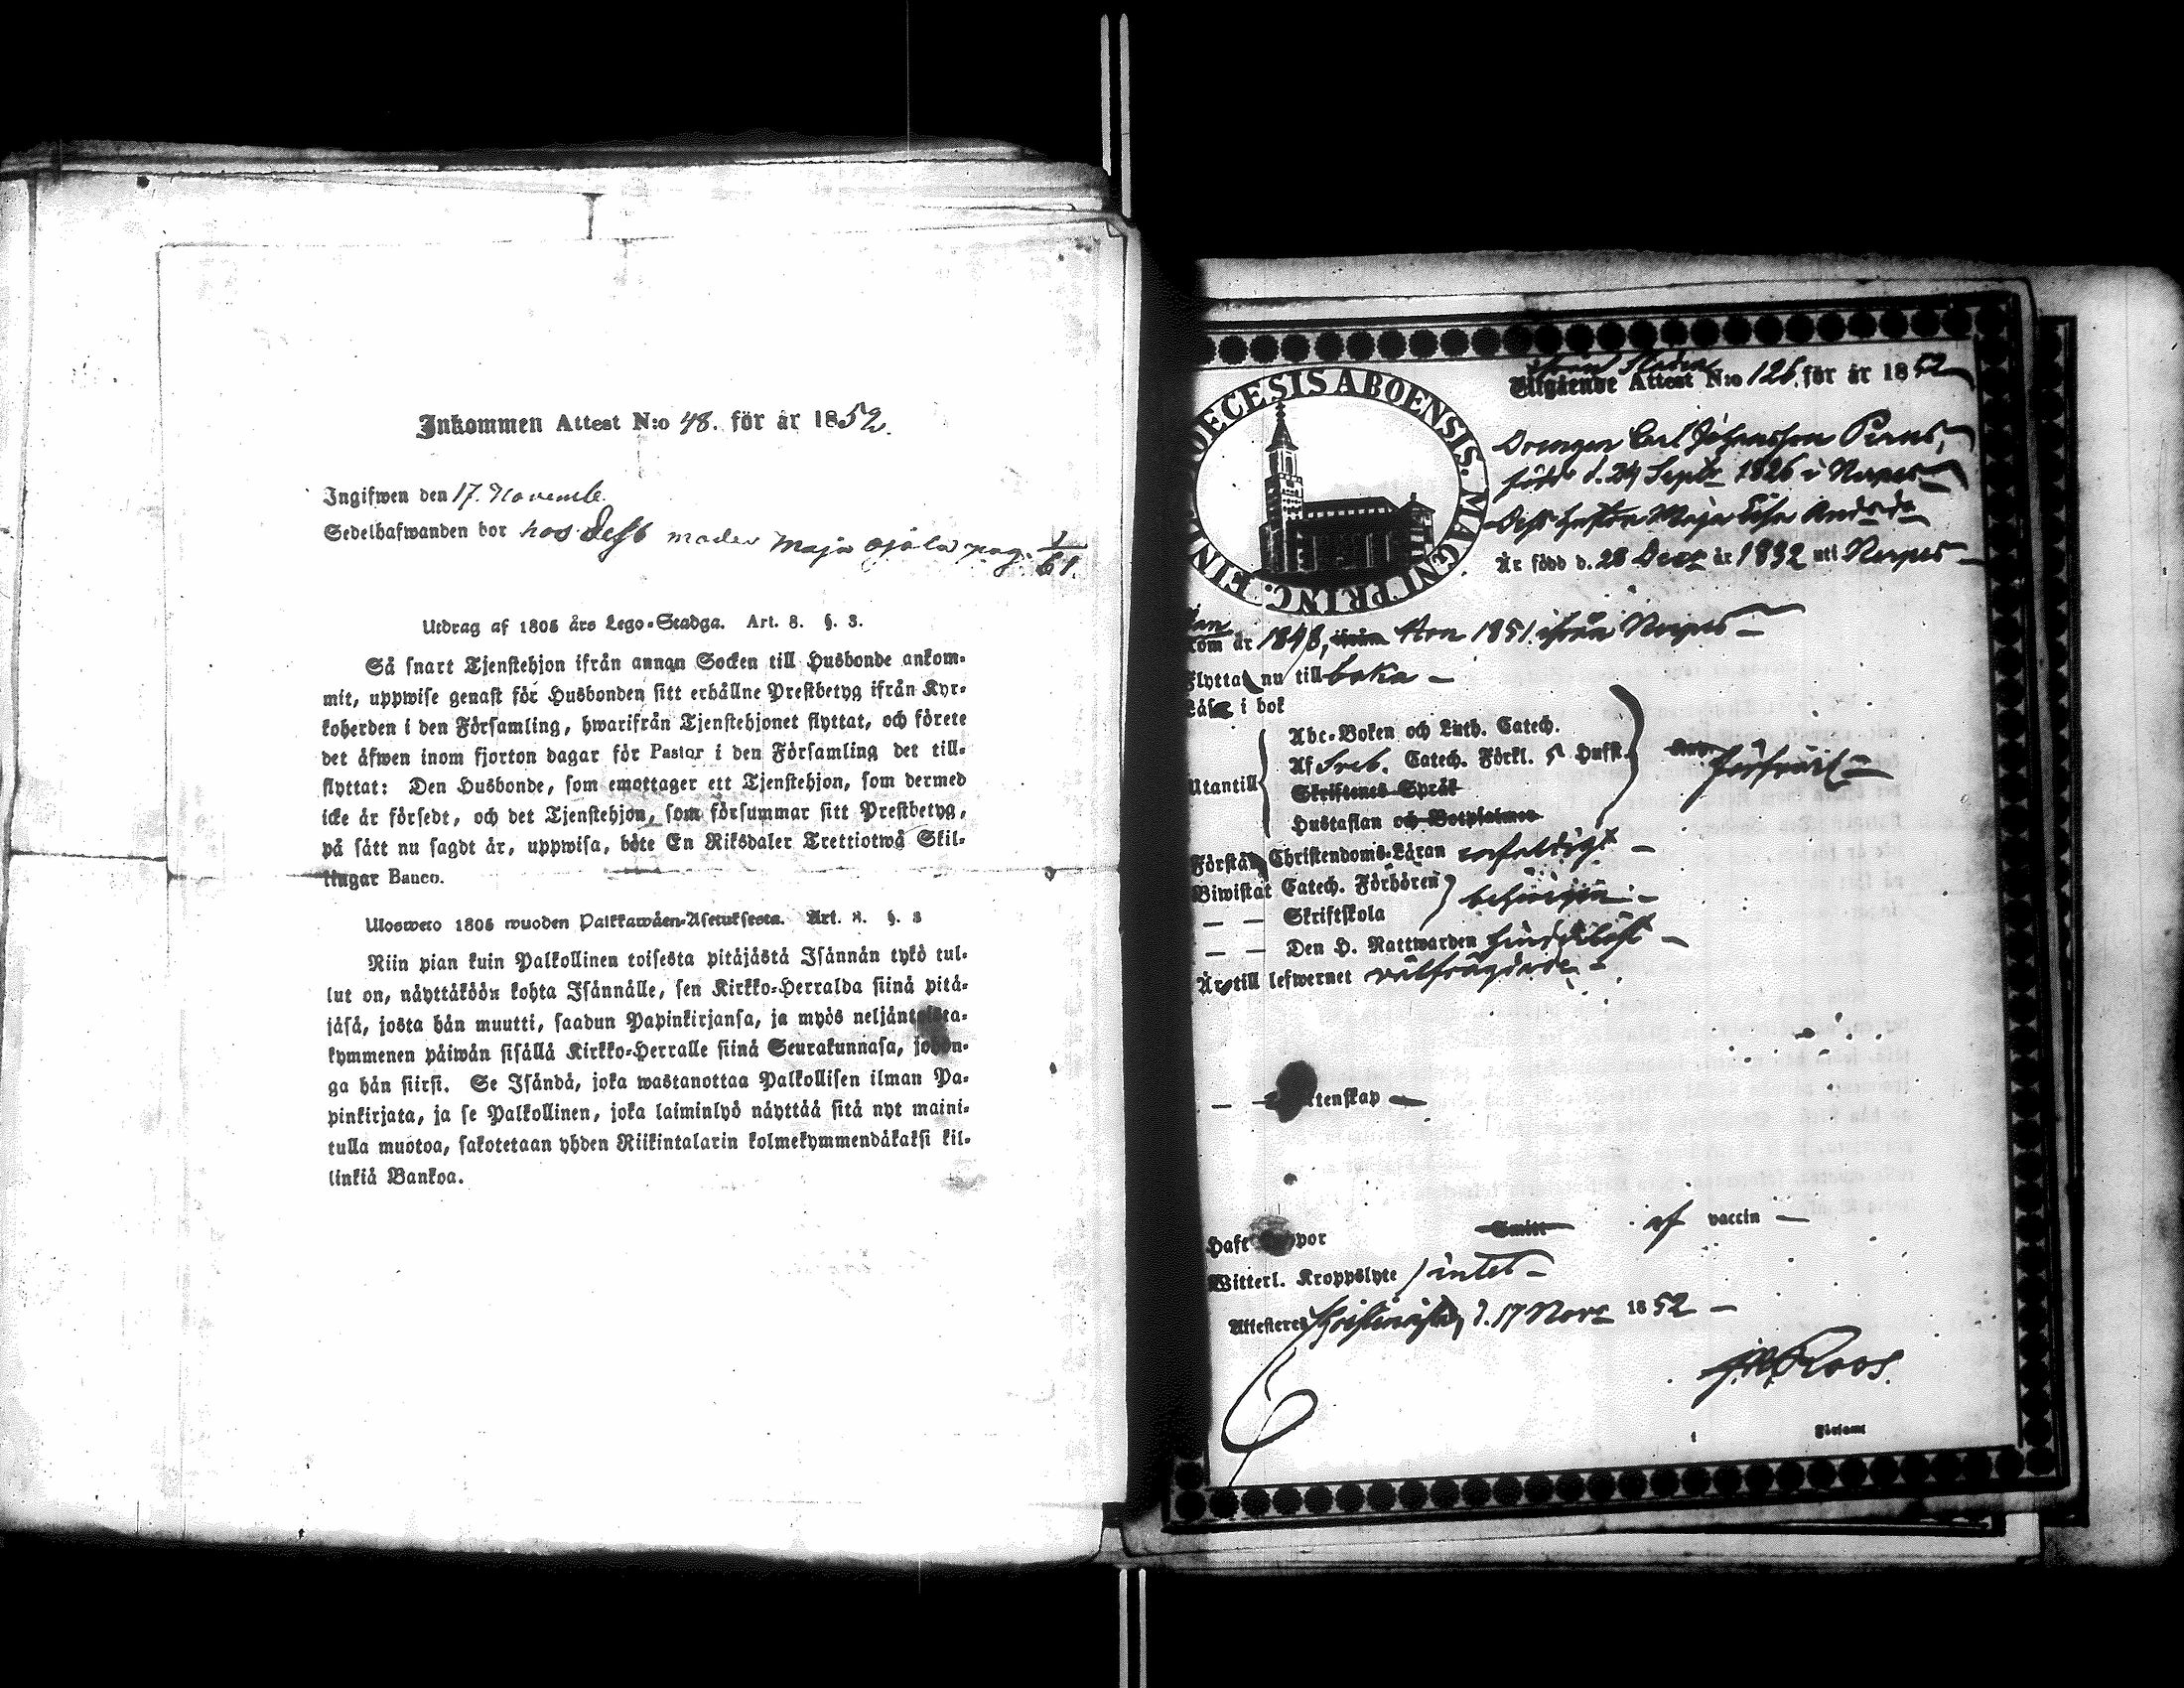 Inkommen Attest N:o 48. för år 1852.
Ingifwen den 17. Novemb.
Sedelhafwanden bor hos dess moder Maja Ojala pag. 1/61.
Utdrag af 1805 års Lego-Stadga. Art. 8. §. 3.
Så snart Tjenstehjon ifrån annan Socken till Husbonde ankom-
mit, uppwise genast för Husbonden sitt erhållne Prestbetyg ifrån Kyr-
koherden i den Församling, hwarifrån Tjenstehjonet flyttat, och förete
det äfwen inom fjorton dagar för Pastor i den Församling det till-
flyttat: Den Husbonde, som emottager ett Tjenstehjon, som dermed
icke är försedt, och det Tjenstehjon, som försummar sitt Prestbetyg,
på sätt nu sagdt är, uppwisa, böte En Riksdaler Trettiotwå Skil-
lingar Banco.
Ulosweto 1805 wuoden Palkkawäen-Asetuksesta. Art. 8. §. 3
Niin pian kuin Palkollinen toisesta pitäjästä Isännän tykö tul-
lut on, näyttäköön kohta Isännälle, sen Kirkko-Herralda siinä pitä-
jäsä, josta hän muutti, saadun Papinkirjansa, ja myös neljäntoista-
kymmenen päiwän sisällä Kirkko-Herralle siinä Seurakunnasa, johon-
ga hän siirsi. Se Isändä, joka wastanottaa Palkollisen ilman Pa-
pinkirjata, ja se Palkollinen, joka laiminlyö näyttää sitä nyt maini-
tulla muotoa, sakotetaan yhden Riikintalarin kolmekymmendäkaksi kil-
linkiä Bankoa.
DIOECESIS ABOENSIS. MAGNI PRINC. FINL.
Utgående Attest N:o 126. för år 1852
Drengen Carl Johansson
född d. 24 Septr 1826 i Nerpes
Dess hustru Maja Lisa Andsdr
Är född d. 28 Decr år 1832 uti Nerpes
kom år 1848, Hon 1851 ifrån Nerpes
flyttat nu till baka
Läser i bok
Utantill
Abc-Boken och Luth. Catech.
Af Sreb. Catech. Förkl. Hust.
Skriftenes Språk
Hustaflan och Botpsalmer
försvarl.
Förstår Christendoms-Läran enfaldigt
Biwistat Catech. Förhören behörigen
— — Skriftskola
— — Den H. Nattwarden
Är till lefwernet välfrägdade
Haft Koppor Smitt af vaccin
Witterl. Kroppslyte intet
Attesteres Christinestad, d. 17 Novr 1852
Roos.